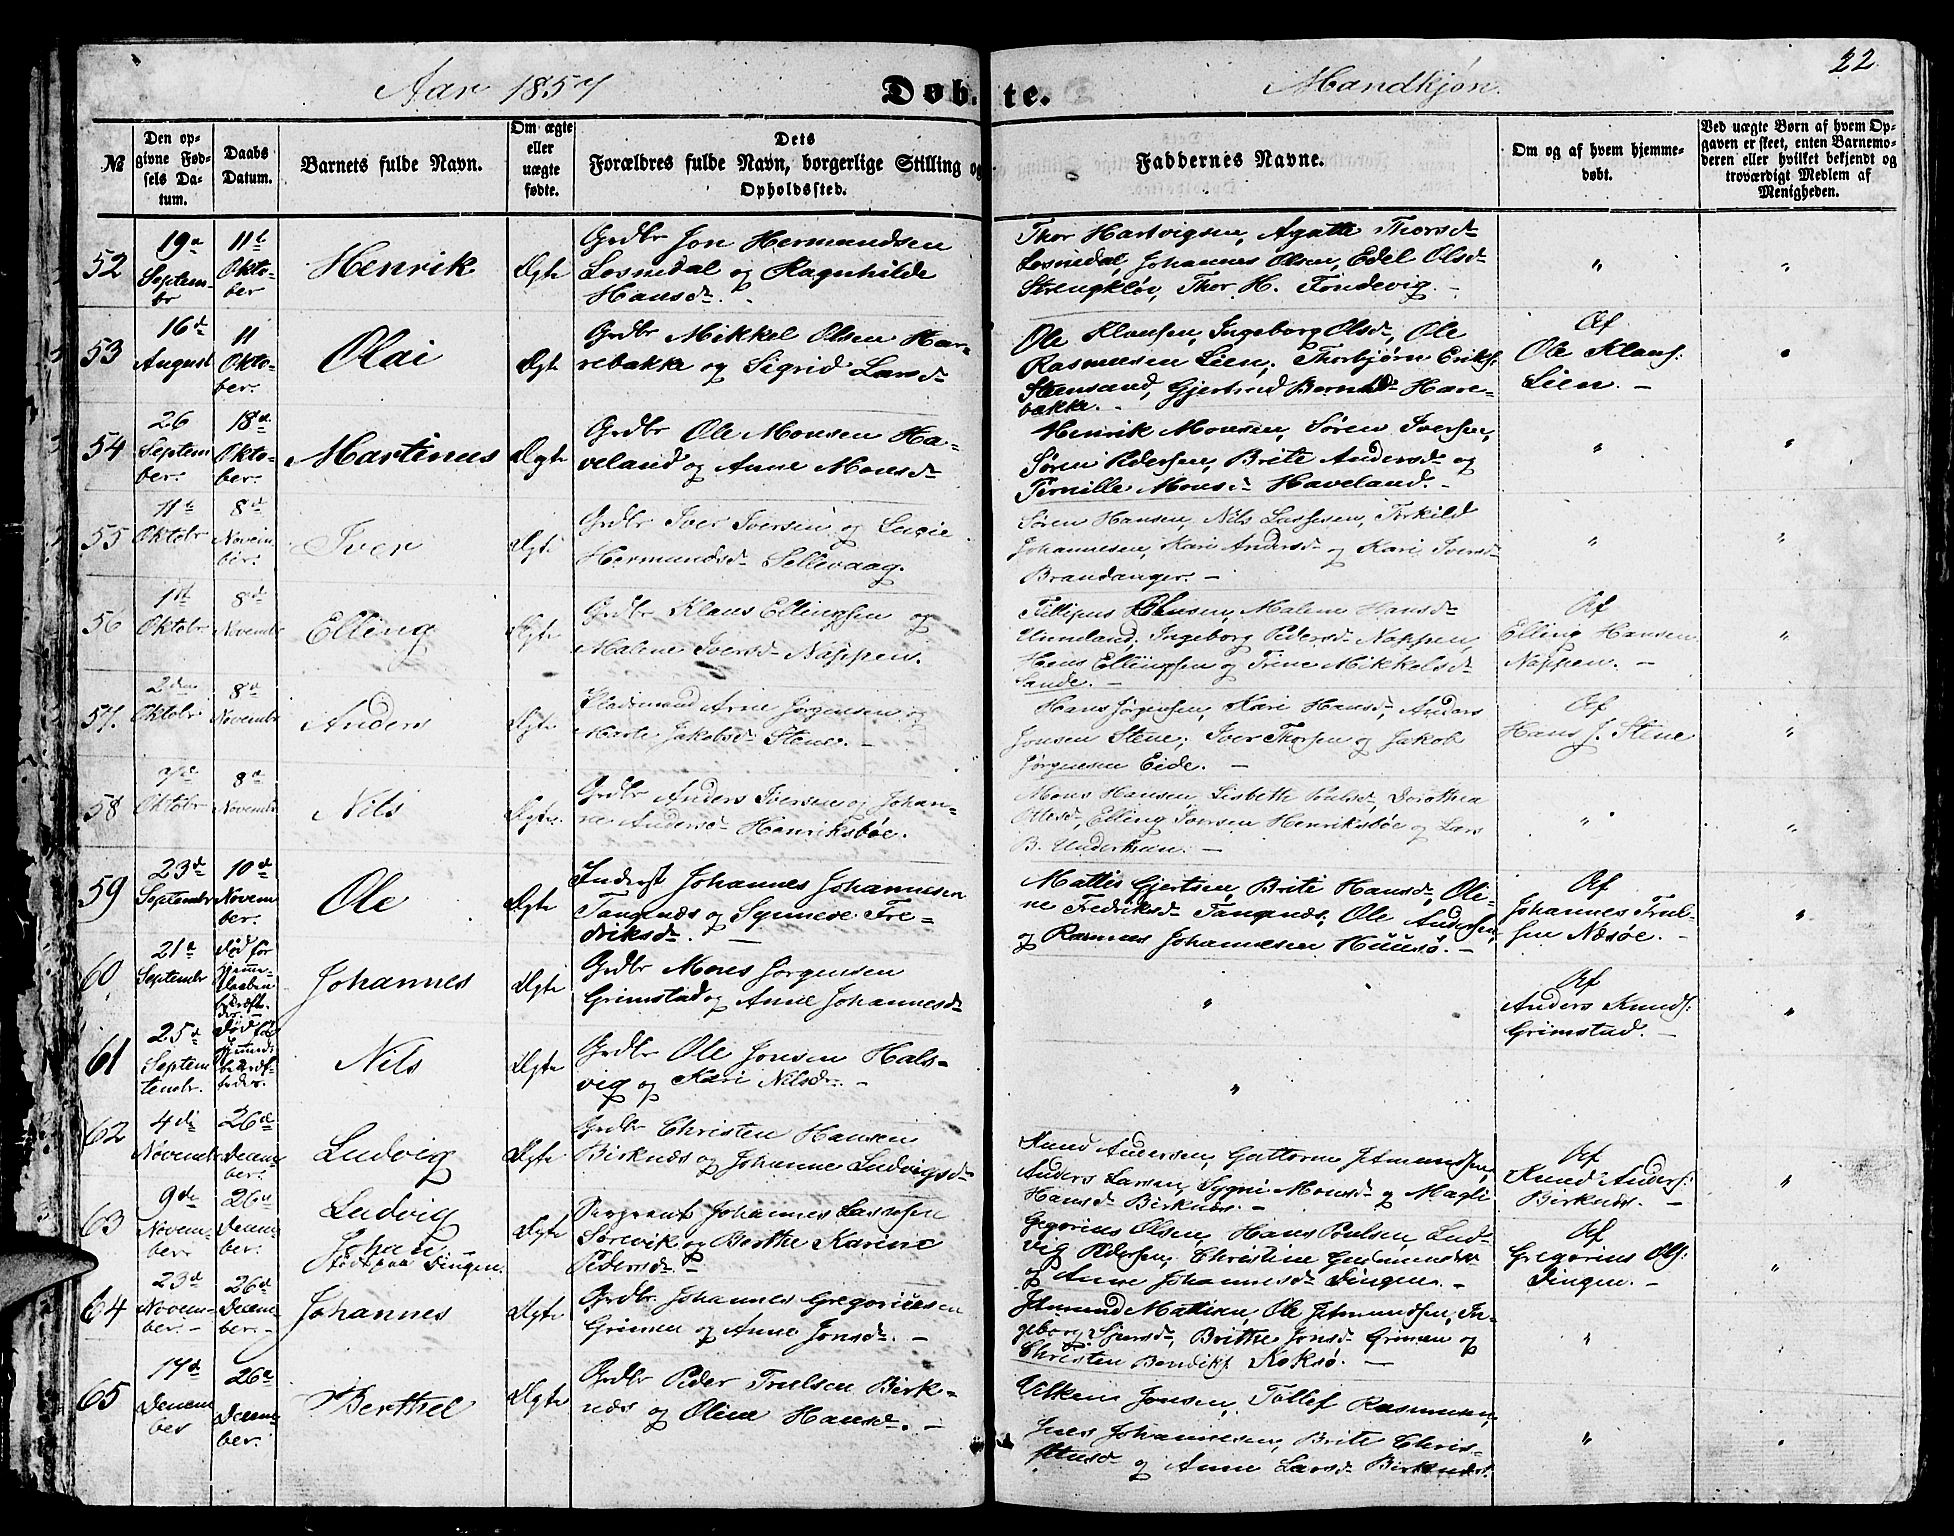 22.
Aar 1857
Døbte.
Mandkjøn.
№
Den opgivne Fødsels Datum.
Daabs Datum.
Barnets fulde Navn.
Om ægte eller uægte fødte.
Dets Forældres fulde Navn, borgerlige Stilling og Opholdssted.
Faddernes Navne.
Om og af hvem hjemmedøbt.
Ved uægte Børn af hvem Opgaven er skeet, enten Barnemoderen eller hvilket bekjendt og troværdigt Medlem af Menigheden.
52
19de September
11te Oktober
Henrik
Ægte
Grdbr Jon Hermundsen
Losnedal og Ragnhilde
Hansdr.
Thor Hartvigsen, Agathe Thorsdr
Losnedal, Johannes Olsen, Edel Olsdr
Strengkløv, Thor H. Tondevig. –
"
"
53
16de August
11 Oktober.
Olai
Ægte
Grdbr Mikkel Olsen Har-
rebakke og Sigrid Larsdr
Ole Klausen, Ingeborg Olsdr, Ole
Rasmussen Lien, Thorbjørn Eriks:
Steensand, Gjertrud Berntsdr Hare-
bakke. -
Af
Ole Klaus:
Lien. –
"
54
26 September.
18de Oktober.
Martinus
Ægte
Grdbr Ole Monsen Ha-
veland og Anne Monsdr
Henrik Monsen, Søren Iversen,
Søren Pedersen, Brite Andersdr og
Pernille Monsdr Haveland. -
"
"
55
11te Oktobr
8de November.
Iver
Ægte
Grdbr Iver Iversen og Lucie
Hermundsdr Sellevaag.
Søren Hansen, Nils Lassesen, Torkild
Johannesen, Kari Andersdr og Kari Iversdr
Brandanger. –
"
"
56
1st Oktobr
8de Novembr
Elling
Ægte
Grdbr Klaus Ellingsen og
Malene Iversdr Nappen.
Fillipus Hansen, Malene Hansdr
Ingeborg Pedersdr Nappen,
Hans Ellingsen og Trine Mikkelsdr
Sande. –
Af
Elling Hansen
Nappen. –
"
57.
2den Oktobr
8de Novembr
Anders
Ægte
Pladsmand Arne Jørgensen og
Marte Jakobsdr Stene. –
Hans Jørgensen, Kari Hansdr, Anders
Jonsen Stene, Iver Thorsen og Jakob
Jørgensen Eide. –
Af
Hans J. Stene
"
58
7de Oktobr
8de Novembr
Nils
Ægte.
Grdbr Anders Iversen og Johan-
ne Andersdr Henriksbøe.
Mons Hansen, Lisbeth Poulsdr, Dorothea
Olsdr, Elling Iversen Henriksbøe og Lars
B. –
"
"
59
23de Septembr
10de November.
Ole
Ægte
Inderst Johannes Johannesen
Tangenæs og Synneve Fre-
driksdr. –
Mattis Gjertsen, Brite Hansdr, Oli-
ne Fredriksdr Tangenæs, Ole Andersen,
og Rasmus Johannesen Huusø. –
Af
Johannes Trul-
sen Næsøe. –
"
60
21de Septembr
Død før
Johannes
Ægte
Grdbr Mons Jørgensen
Grimstad og Anne Johannesdr
"
Af
Anders Knuds:
Grimstad. –
"
61
25de Septem
tembr.
Død før
Nils
Ægte
Grdbr Ole Jonsen Hals-
vig og Kari Nilsdr. –
"
62
4de Novembr
26de December.
Ludvig
Ægte
Grdbr Christen Hansen
Birknæs og Johanne Ludvigsdr
Knud Andersen, Guttorm Amundsen,
Anders Larsen, Sygni Monsdr og Magli
Hansdr Birknæs. –
Af
Knud Anders:
Birknæs. –
"
63
9de November.
26de December.
Ludvig
Johan
født paa Dingen.
Ægte
Sergeant Johannes Lassesen
Sørevik og Berthe Karine
Pedersdr
Gregorius Olsen, Hans Poulsen, Lud-
vig Pedersen, Christine Gudmundsdr
og Anne Johannesdr Dingen. –
Af
Gregorius Ols:
Dingen. –
"
64
23de November. –
26de December. –
Johannes
Ægte
Grdbr. Johannes Gregoriusen
Grimen og Anne Jonsdr. –
Amund Mattisen, Ole Amundsen, In-
geborg Sjursdr, Brithe Jonsdr Grimen og
Christen Bendiks Koksø. –
"
65
17de December
26de December.
Berthel
Ægte
Grdbr Peder Trulsen Birk-
næs og Oline Hansdr. –
Villem Jonsen, Tollef Rasmussen,
Jens Johannesen, Brite Chris-
stensdr og Anne Larsdr Birknæs.
"